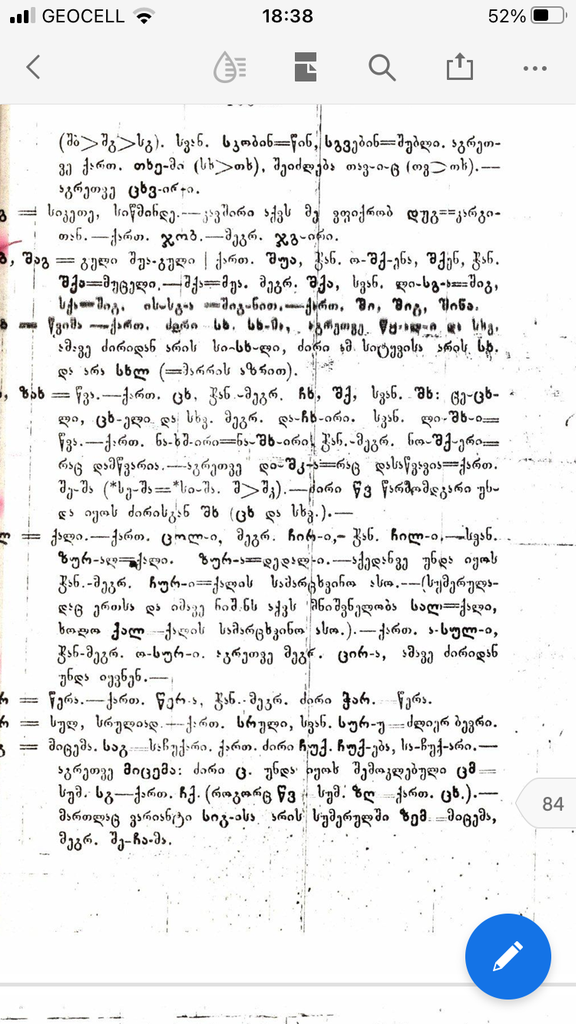 GEOCELL 18:38 52%
(შბ>შგ>სგ). სვან. სკობინ=წინ, სგვებინ=შუბლი. აგრეთ-
ვე ქართ. თხე-მი (სხ>თხ), შეიძლება თავ-ი-ც (თვ>თხ).—
აგრეთვე ცხვ-ირ-ი.
გ = სიკეთე, სიწმინდე.—კავშირი აქვს მე ვფიქრობ დუგ=კარგი-
თან.—ქართ. ჯობ.—მეგრ. ჯგ-ირი.
ბ, შაგ = გული შუა-გული | ქართ. შუა, ჭან. ო-შქ-ენა, შქენ, ჭან.
შქა=მუცელი.—შქა=შუა. მეგრ. შქა, სვან. ლი-სგ-ა=შიგ,
სქა=შიგ, ისსგ-ა =შიგნით,—ქართ. ში, შიგ, შინა.
= წვიმა —ქართ. ძირი სხ. სხ-მა, აგრეთვე და სხვ.
ამავე ძირიდან არის სი-სხ-ლი, ძირი ამ სიტყვისა არის სხ.
და არა სხლ (=მარრის აზრით).
, ზახ = წვა.—ქართ. ცხ, ჭან.-მეგრ. ჩხ, შქ, სვან. შხ: ცე-ცხ-
ლი, ცხ-ელი და სხვ. მეგრ. და-ჩხ-ირი. სვან. ლი-შხ-ი=
წვა.—ქართ. ნა-ხშ-ირი=ნა-შხ-ირი, ჭან.-მეგრ. ნო-შქ-ერი=
რაც დამწვარია.—აგრეთვე დი-შკ-ა=რაც დასაწვავია=ქართ.
შე-შა (*სე-შა=*სი-შა. შ>შკ).—ძირი წვ წარმომდგარი უნ-
და იყოს ძირისგან შხ (ცხ და სხვ.).—
ლ = ქალი.—ქართ. ცოლ-ი, მეგრ. ჩირ-ი,- ჭან. ჩილ-ი,—სვან.
ზურ-ალ=ქალი. ზურ-ა=დედალ-ი.—აქედანვე უნდა იყოს
ჭან.-მეგრ. ჩურ-ი=ქალის სამარცხვინო ასო.—(სუმერულა-
დაც ერთსა და იმავე ნიშანს აქვს მნიშვნელობა სალ=ქალი,
ხოლო ქალ —ქალის სამარცხვინო ასო.).—ქართ. ა-სულ-ი,
ჭან-მეგრ. ო-სურ-ი. აგრეთვე მეგრ. ცირ-ა, ამავე ძირიდან
უნდა იყვნენ.—
რ = წერა.—ქართ. წერ-ა, ჭან.-მეგრ. ძირი ჭარ. წერა.
რ = სულ, სრულიად.—ქართ. სრული, სვან. სურ-უ=ძლიერ ბევრი.
გ = მიცემა. საგ—საჩუქარი. ქართ. ძირი ჩუქ. ჩუქ-ება, სა-ჩუქ-არი.—
აგრეთვე მიცემა: ძირი ც. უნდა იყოს შემოკლებული ცმ=
სუმ. სგ—ქართ. ჩქ. (როგორც წვ სუმ. ზღ—ქართ. ცხ.).—
მართლაც ვარიანტი სიგ-ისა არის სუმერულში ზემ=მიცემა,
მეგრ. შე-ჩა-მა.
84